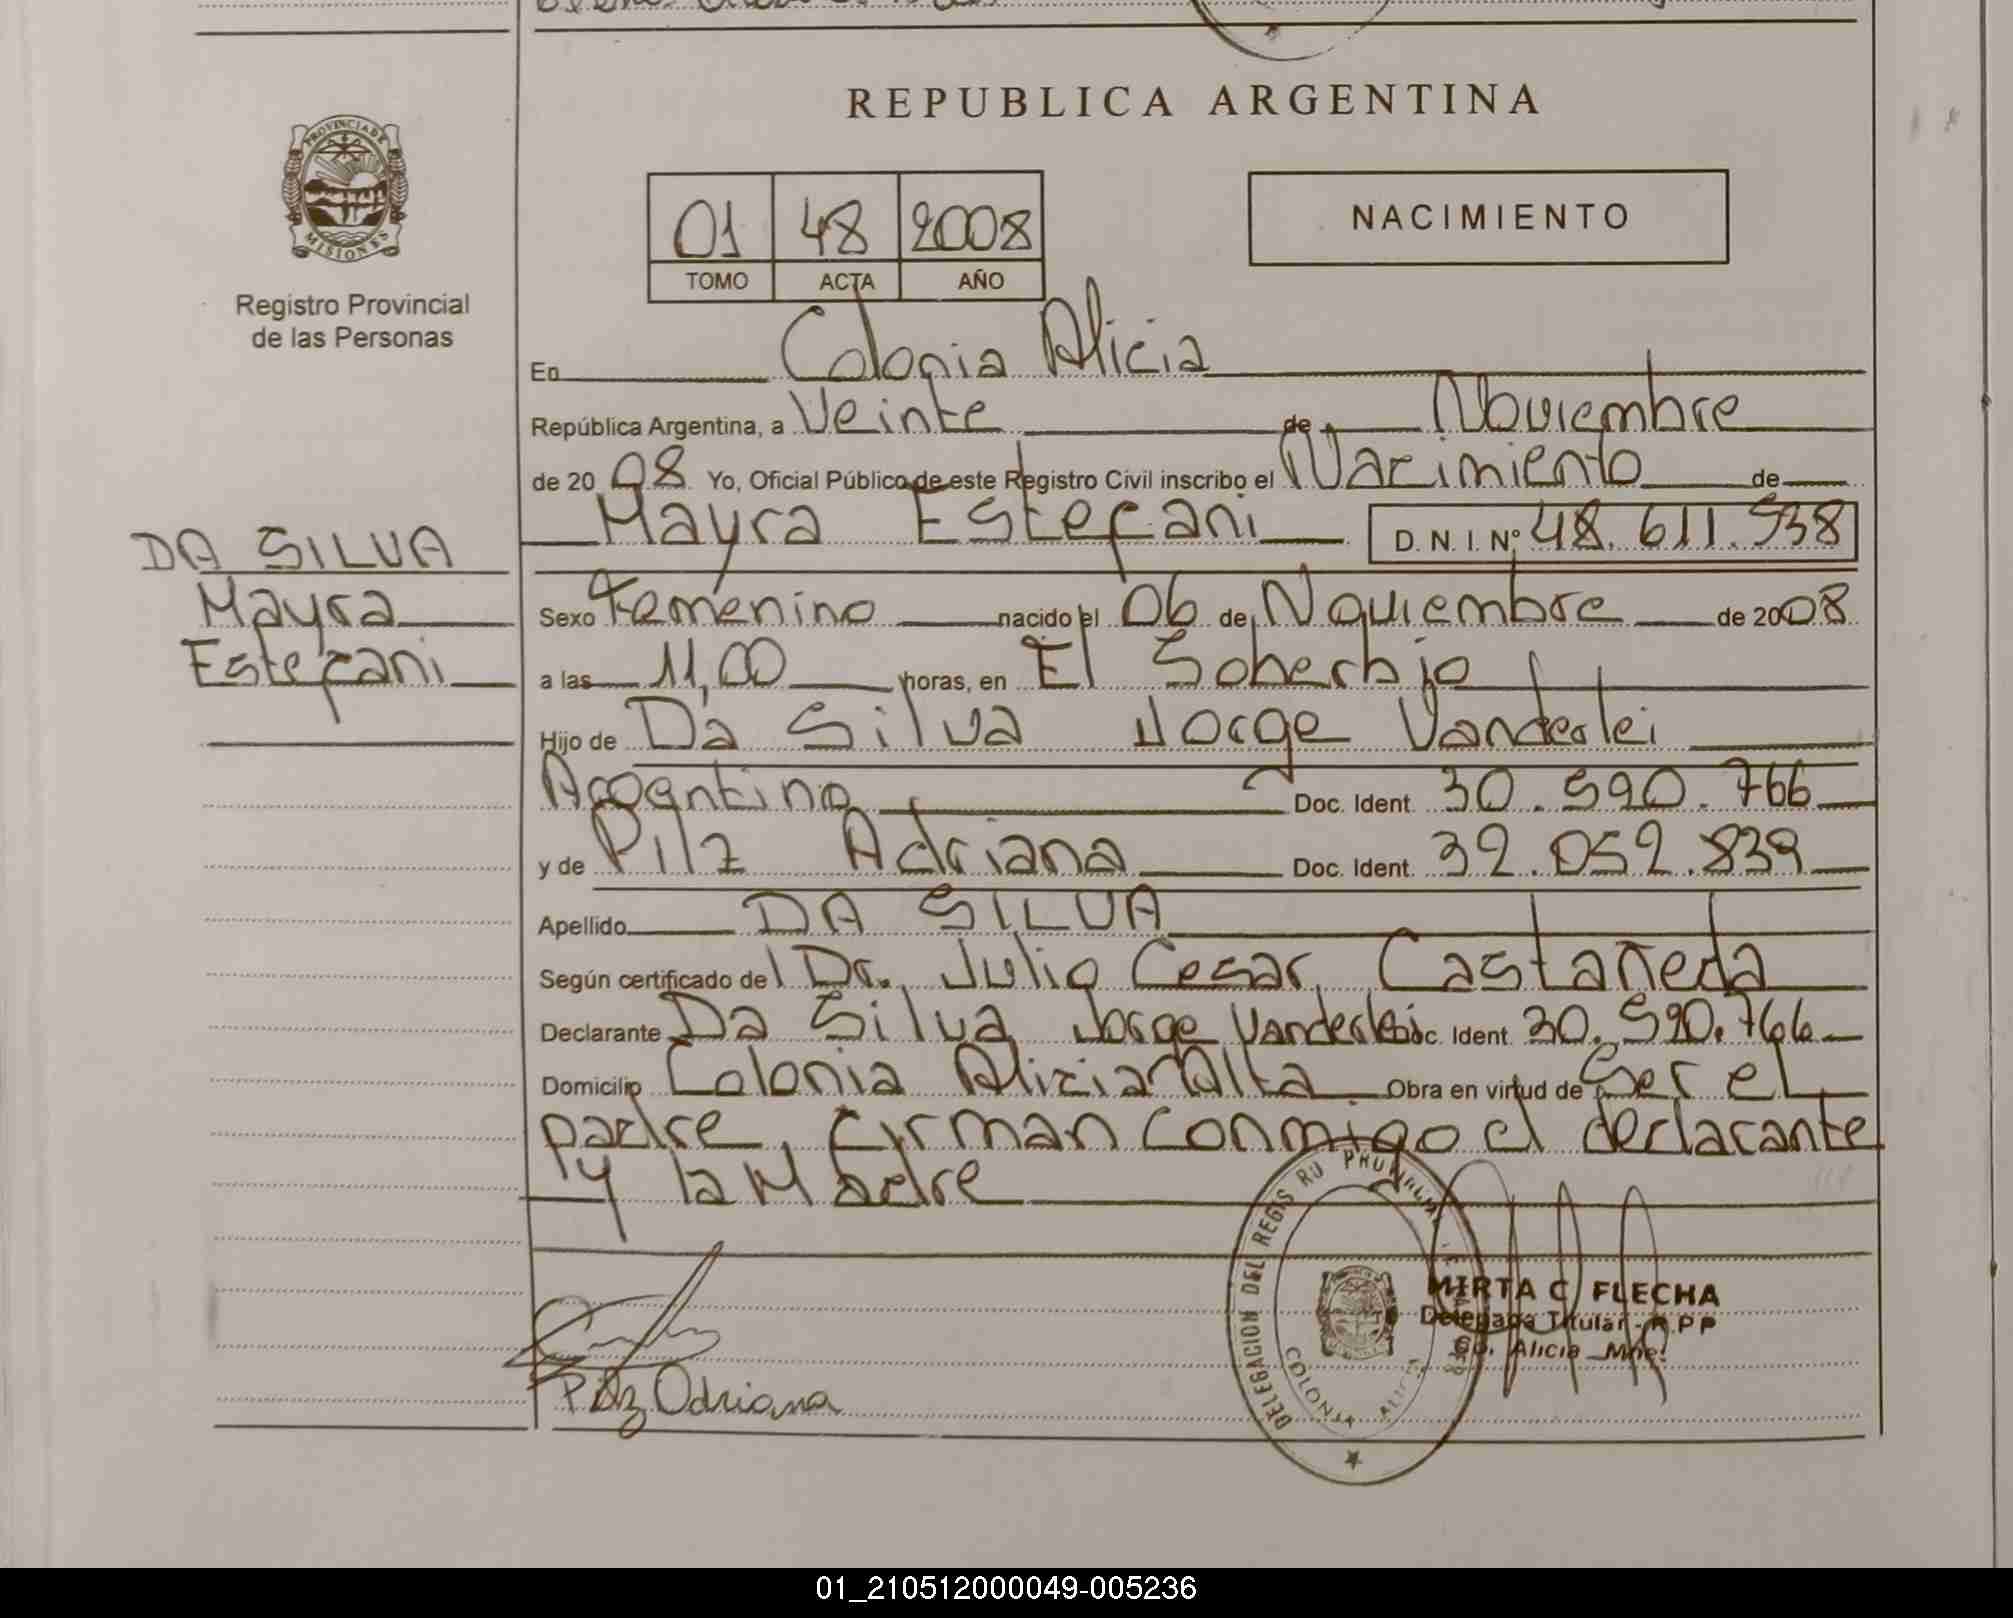 REPUBLICA ARGENTINA
PROVINCIA DE
MISIONES
Registro Provincial
de las Personas
01 48 2008
TOMO ACTA AÑO
NACIMIENTO
En Colonia Alicia
República Argentina, a Veinte de Noviembre
de 2008 Yo, Oficial Público de este Registro Civil inscribo el Nacimiento de
Mayra Estefani D.N.I. Nº 48.611.538
DA SILVA
Mayra
Estefani
Sexo Femenino nacido el 06 de Noviembre de 2008
a las 11,00 horas, en El Soberbio
Hijo de Da Silva Jorge Vanderlei
Argentino Doc. Ident. 30.590.766
y de Pilz Adriana Doc. Ident. 32.052.839
Apellido DA SILVA
Según certificado del Dr. Julio Cesar Castañeda
Declarante Da Silva Jorge Vanderlei Doc. Ident. 30.590.766
Domicilio Colonia Alicia Alta Obra en virtud de Ser el
padre, firman conmigo el declarante
y la Madre
DELEGACION DEL REGIS RO
COLONIA ALICIA
MIRTA C. FLECHA
Delegada Titular - R.P.P
Co. Alicia Mnes.
Pilz Adriana
01_210512000049-005236